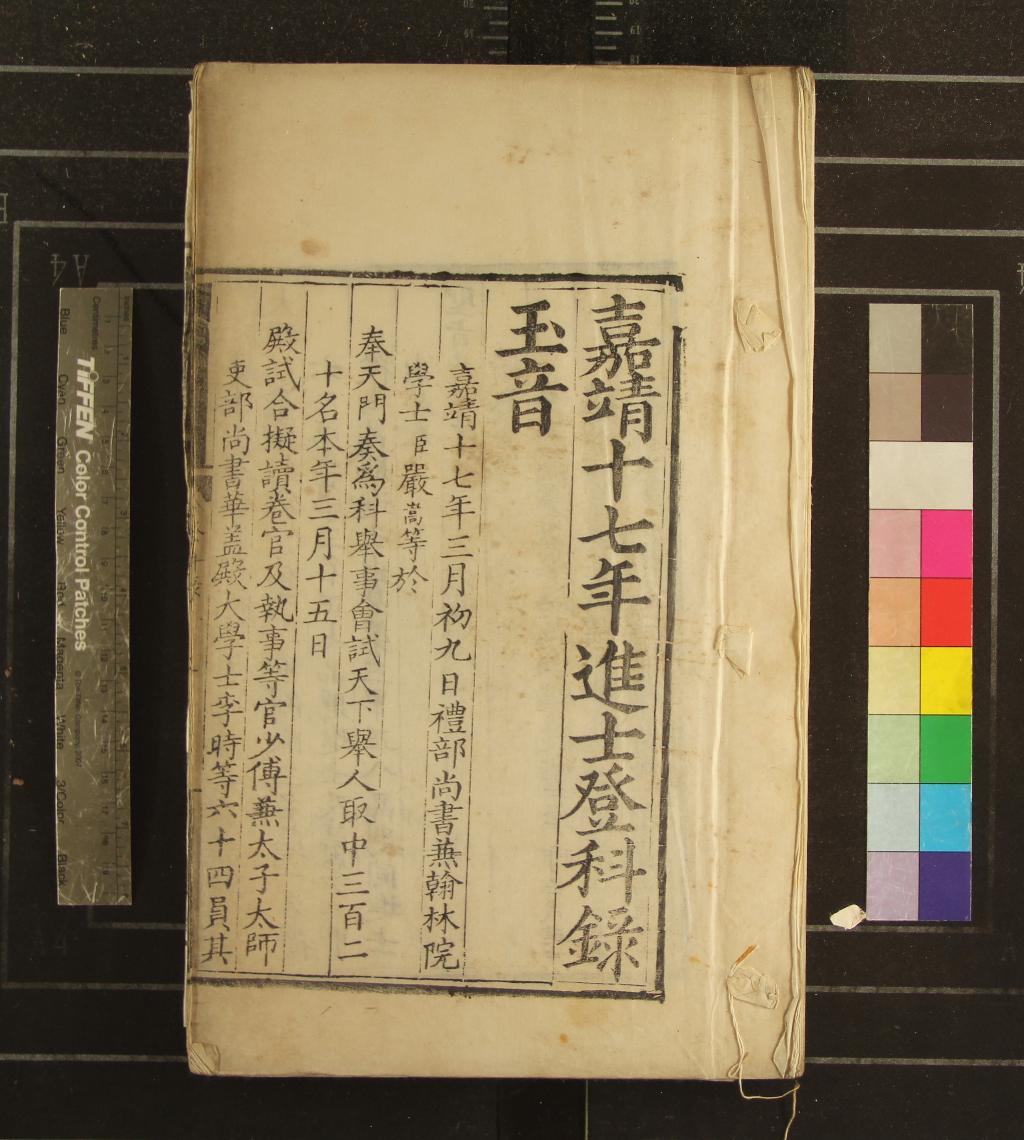 嘉靖十七年進士登科錄
玉音
嘉靖十七年三月初九日禮部尚書蕪翰林院
學士臣嚴嵩等於
奉天門奏爲科舉事會試天下舉人取中三百二
十名本年三月十五日
殿試合擬讀卷官及執事等官少傅蕪太子太師
吏部尚書華盖殿大學士李時等六十四員其
TIFFEN Color Control Patches
Blue
Cyan
Green
Yellow
Red
Magenta
White
3/Color
Black
Centimetres
A4